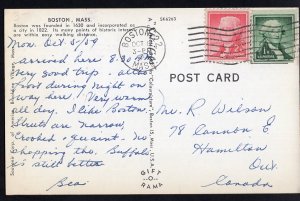 BOSTON, MASS.
BOSTON was founded in 1630 and incorporated as
a city in 1822. Its many points of historic interest
are within easy walking distance.
Mon. Oct. 5/59
arrived here 8.30 AM
Very good trip - altho
frost during night on
way here. Very warm
all day. I like Boston.
Streets are narrow,
crooked & quaint - no
shopping tho. Buffalo
is still better
Bea
A
SK6263
BOSTON
OCT
MASS
POST CARD
Mr. R Wilson
78 Cannon E
Hamilton
Ont.
Canada
GIFT
-O-
RAMA